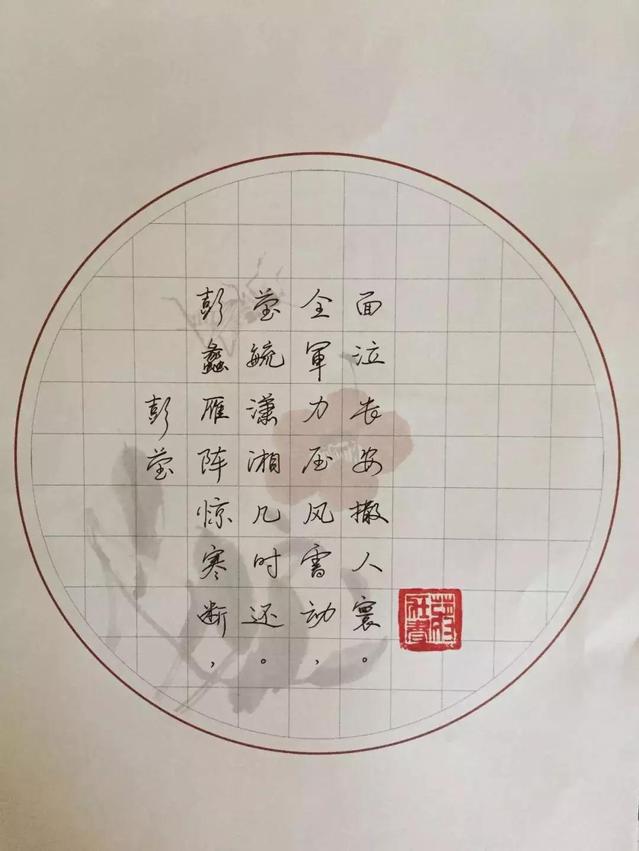 彭莹
彭蠡雁阵惊寒断，
莹毓潇湘几时还。
全軍力压风雷动，
面泣长安撒人寰。